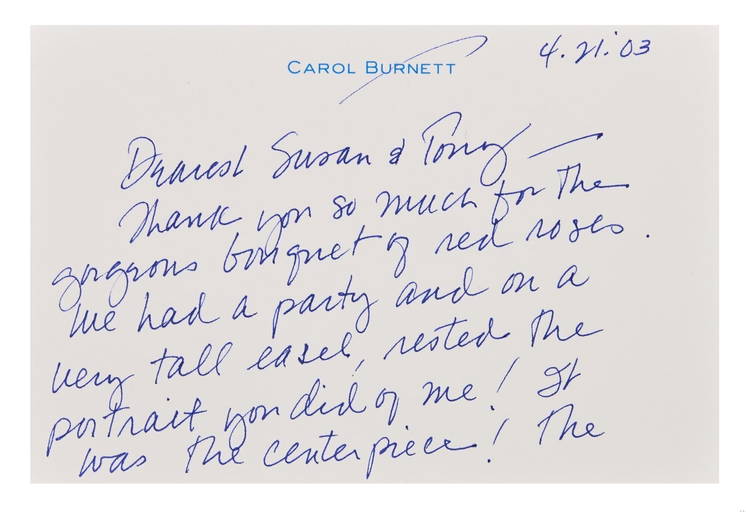 CAROL BURNETT
4.21.03
Dearest Susan & Tony —
Thank you so much for the
gorgeous bouquet of red roses.
We had a party and on a
very tall easel, rested the
portrait you did of me! It
was the centerpiece! The